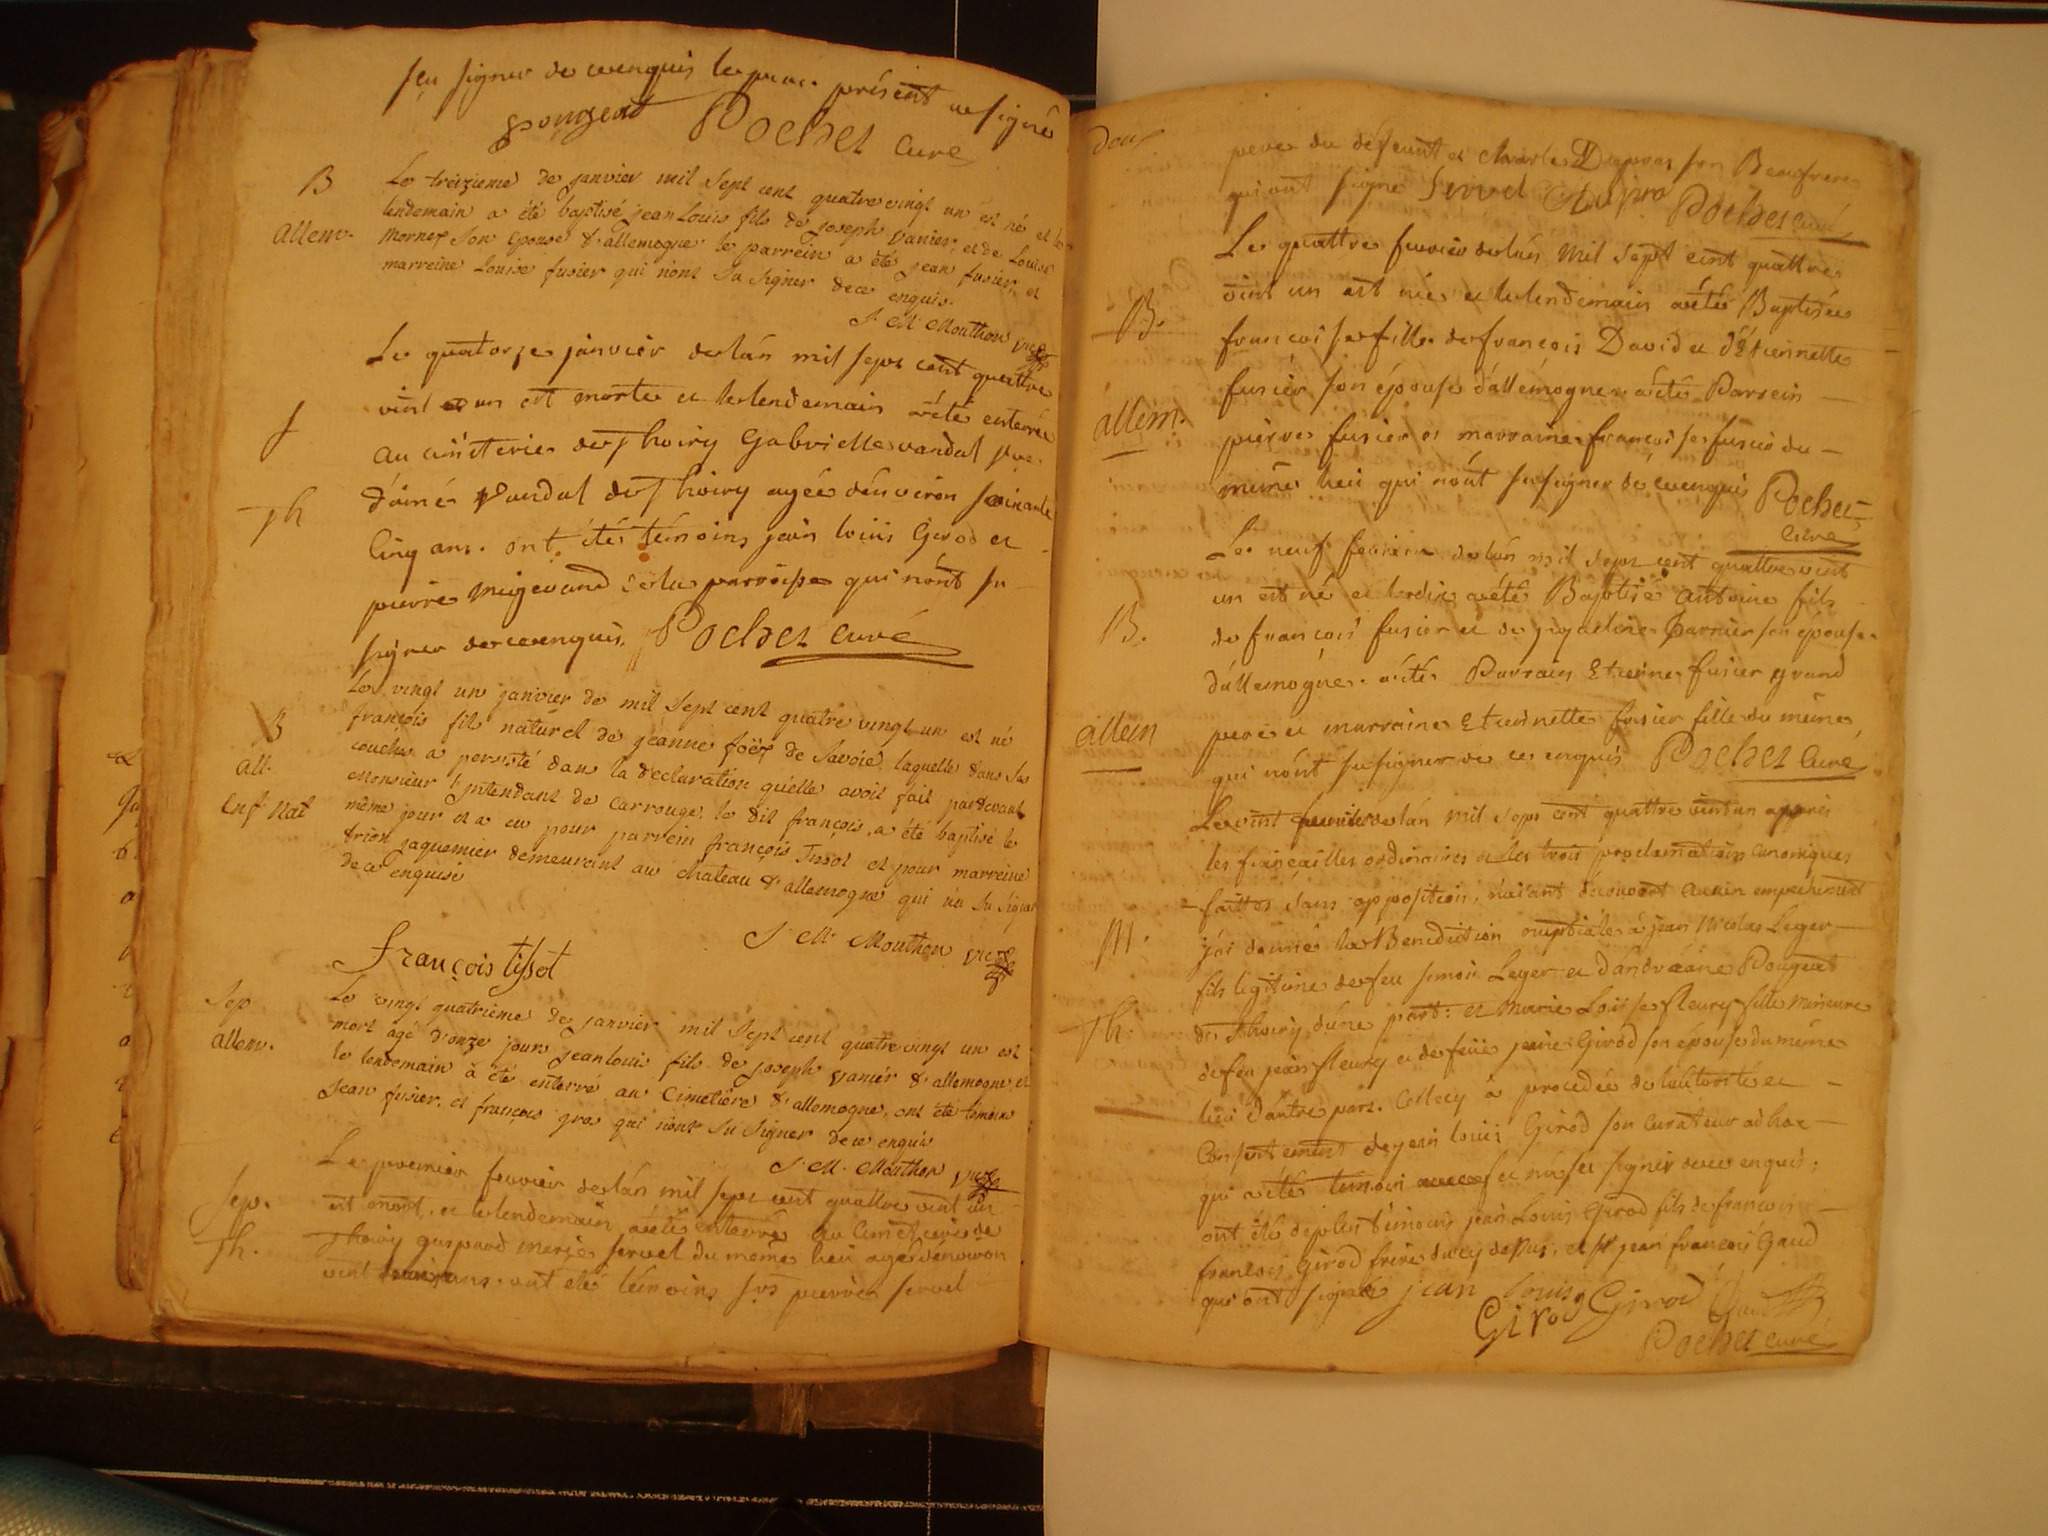 sçu signer de ce enquis le present a signé
pongent Pochet curé
B
Le treizieme de janvier mil sept cent quatre vingt un est né et le
allem.
lendemain a été baptisé jean Louis fils de joseph vanier, et de Louise
Mornex son epouse d'allemogne le parrein a été jean fusier, et
marreine Louise fusier qui n'ont su signer de ce enquis.
J. M. Mouthon vic
Le quatorze janvier de l'an mil sept cent quattre
vint un est morte et le lendemain a été enterrée
au cimeterie de Thoiry Gabrielle vandal
Th
d'aimé vandal de Thoiry agée d'environ soixante
Cinq ans. ont étés témoins jean louis Girod et
pierre migevand de la parroisse qui n'ont su
signer de ce enquis. Pochet curé
B
Le vingt un janvier de mil sept cent quatre vingt un est né
françois fils naturel de jeanne foëx de Savoie, laquelle dans ses
all.
couches a persisté dans la déclaration qu'elle avoit fait pardevant
Enf. Nat
Monsieur l'intendant de Carrouge, le dit françois, a été baptisé le
même jour et a eu pour parrein françois Tissot et pour marreine
jaquemier demeurant au chateau d'allemogne qui n'a su signer
de ce enquise
J. M. Mouthon vic
françois tissot
Sep
Le vingt quatrieme de janvier mil sept cent quatre vingt un est
allem.
mort agé d'onze jours jean louis fils de joseph vanier d'allemogne et
le lendemain à été enterré au Cimetière d'allemogne, ont été temoins
jean fusier, et françois gros qui n'ont su signer de ce enquis
J. M. Mouthon vic
Le premier fevrier de l'an mil sept cent quattre vint un
Sep.
est mort, et le lendemain a étés enterré au Cimetierie de
Th.
Thoiry gaspard marie servel du même lieu agé d'environ
vint ans. ont étés témoins pierre servel
deux
pere du defeunt et charle Dupras son Beaufrere
qui ont signé Servel Pochet curé
Le quattre fevrier de l'an mil sept cent quattre
vint un est née et le lendemain a étés Baptisée
B.
françoise fille de françois David et d'Etiennette
fusier son épouse d'allemogne a étés Parrein
allem.
pierre fusier et marraine françoise fusier du
même lieu qui n'ont su signer de ce enquis Pochet
Curé
Le neuf fevrier de l'an mil sept cent quattre vint
un est né et le dix a étés Baptisé antoine fils
B.
de françois fusier et de jaqueline son épouse
d'allemogne. a étés Parrain Etienne fusier grand
allem
pere et marraine Etiennette fusier fille du même
qui n'ont su signer de ce enquis Pochet Curé
Le vint fevrier de l'an mil sept cent quattre vint un apprès
les fiançailles ordinaires et les trois proclamations canoniques
faittes sans opposition, n'aiant découvert aucun empechement
M.
j'ai donné la Benediction nuptiale à jean Nicolas Leger
fils legitime de feu simon Leger et d'andréane Pongent
Th.
de Thoiry d'une part: et Marie Loise fleury fille mineure
de feu jean fleury et de feüe jeane Girod son épouse du même
lieu d'autre part. Cellecy à procedée de l'autorité et
Consentement de jean louis Girod son curateur adhoc
qui a étés temoin et n'a su signer de ce enquis;
ont étés de plus témoins jean Louis Girod fils de françois
françois Girod frère du cy dessus, et Sr jean françois Gaud
qui ont signés jean louis
Girod Girod Gaud
Pochet curé